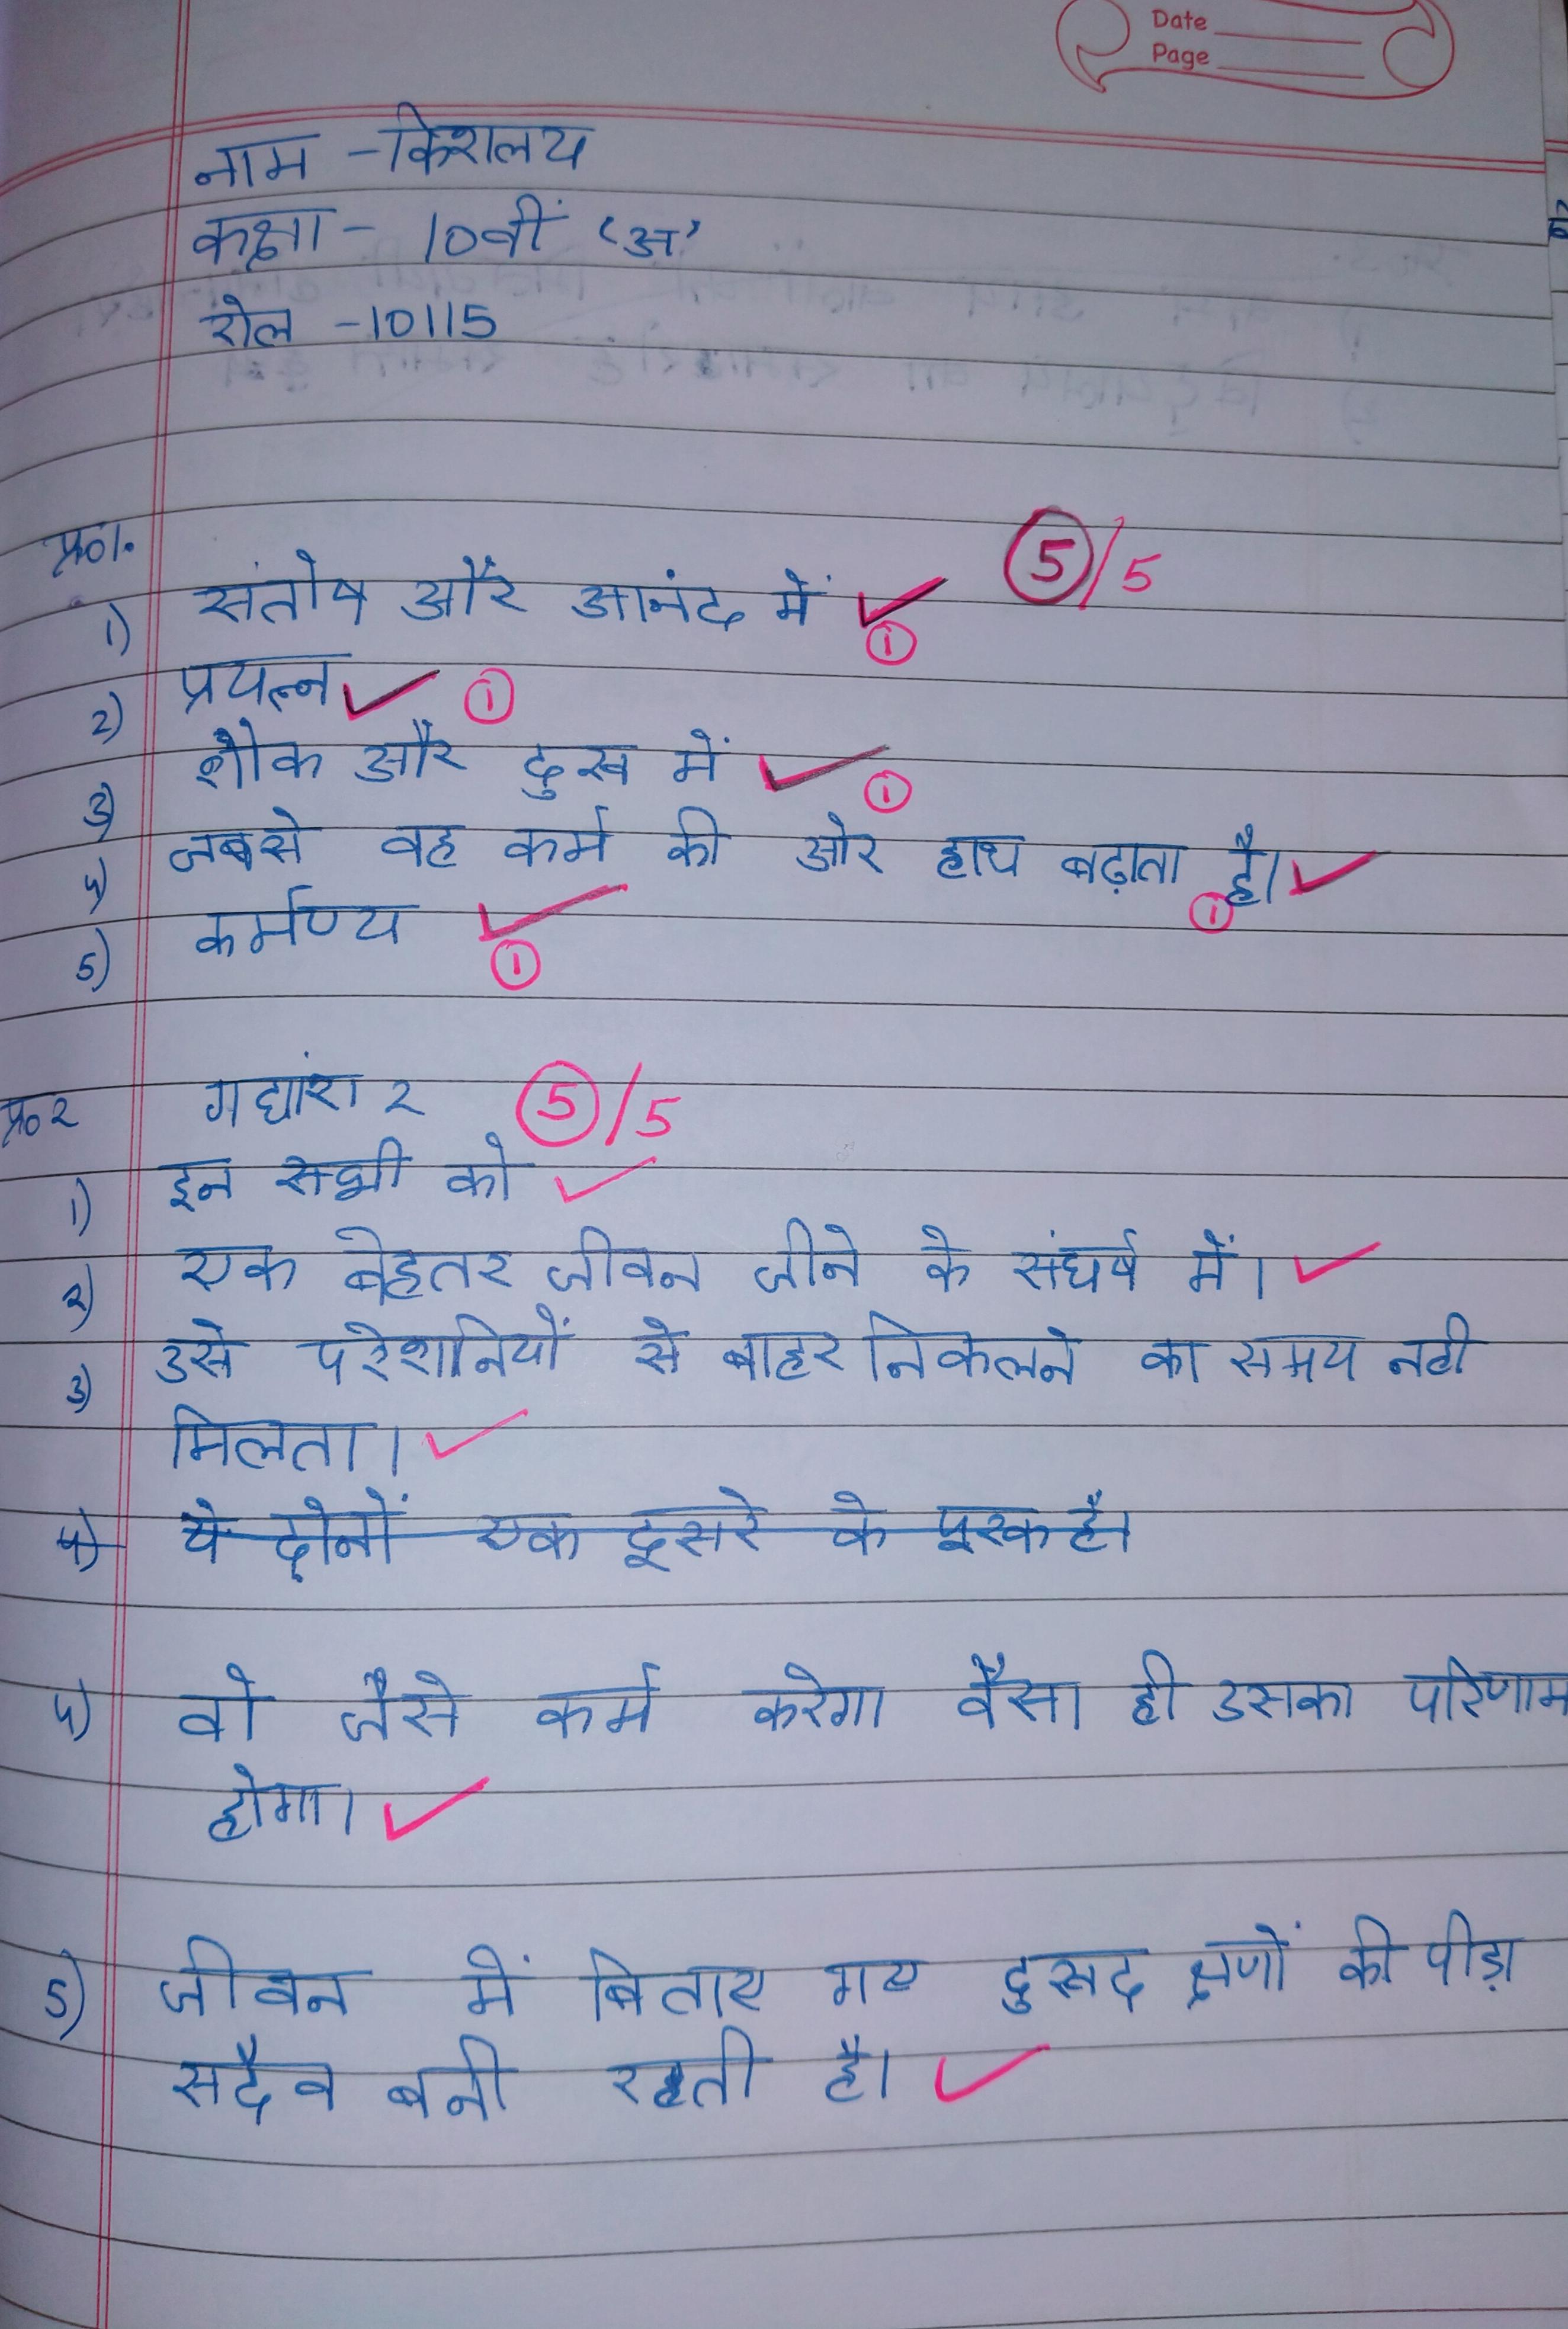 Date
Page
नाम - किशलय
कक्षा - 10वीं 'अ'
रोल - 10115
प्र०1.
5/5
1) संतोष और आनंद में
1
2) प्रयत्न 1
3) शोक और दुख में
1
4) जबसे वह कर्म की ओर हाथ बढ़ाता है।
1
5) कर्मण्य
1
प्र०2 गद्यांश 2 5/5
1) इन सभी को
2) एक बेहतर जीवन जीने के संघर्ष में।
3) उसे परेशानियों से बाहर निकलने का समय नही
मिलता।
4) ये दोनों एक दूसरे के पूरक है।
4) वो जैसे कर्म करेगा वैसा ही उसका परिणाम
होगा।
5) जीवन में बिताए गए दुखद क्षणों की पीड़ा
सदैव बनी रहती है।